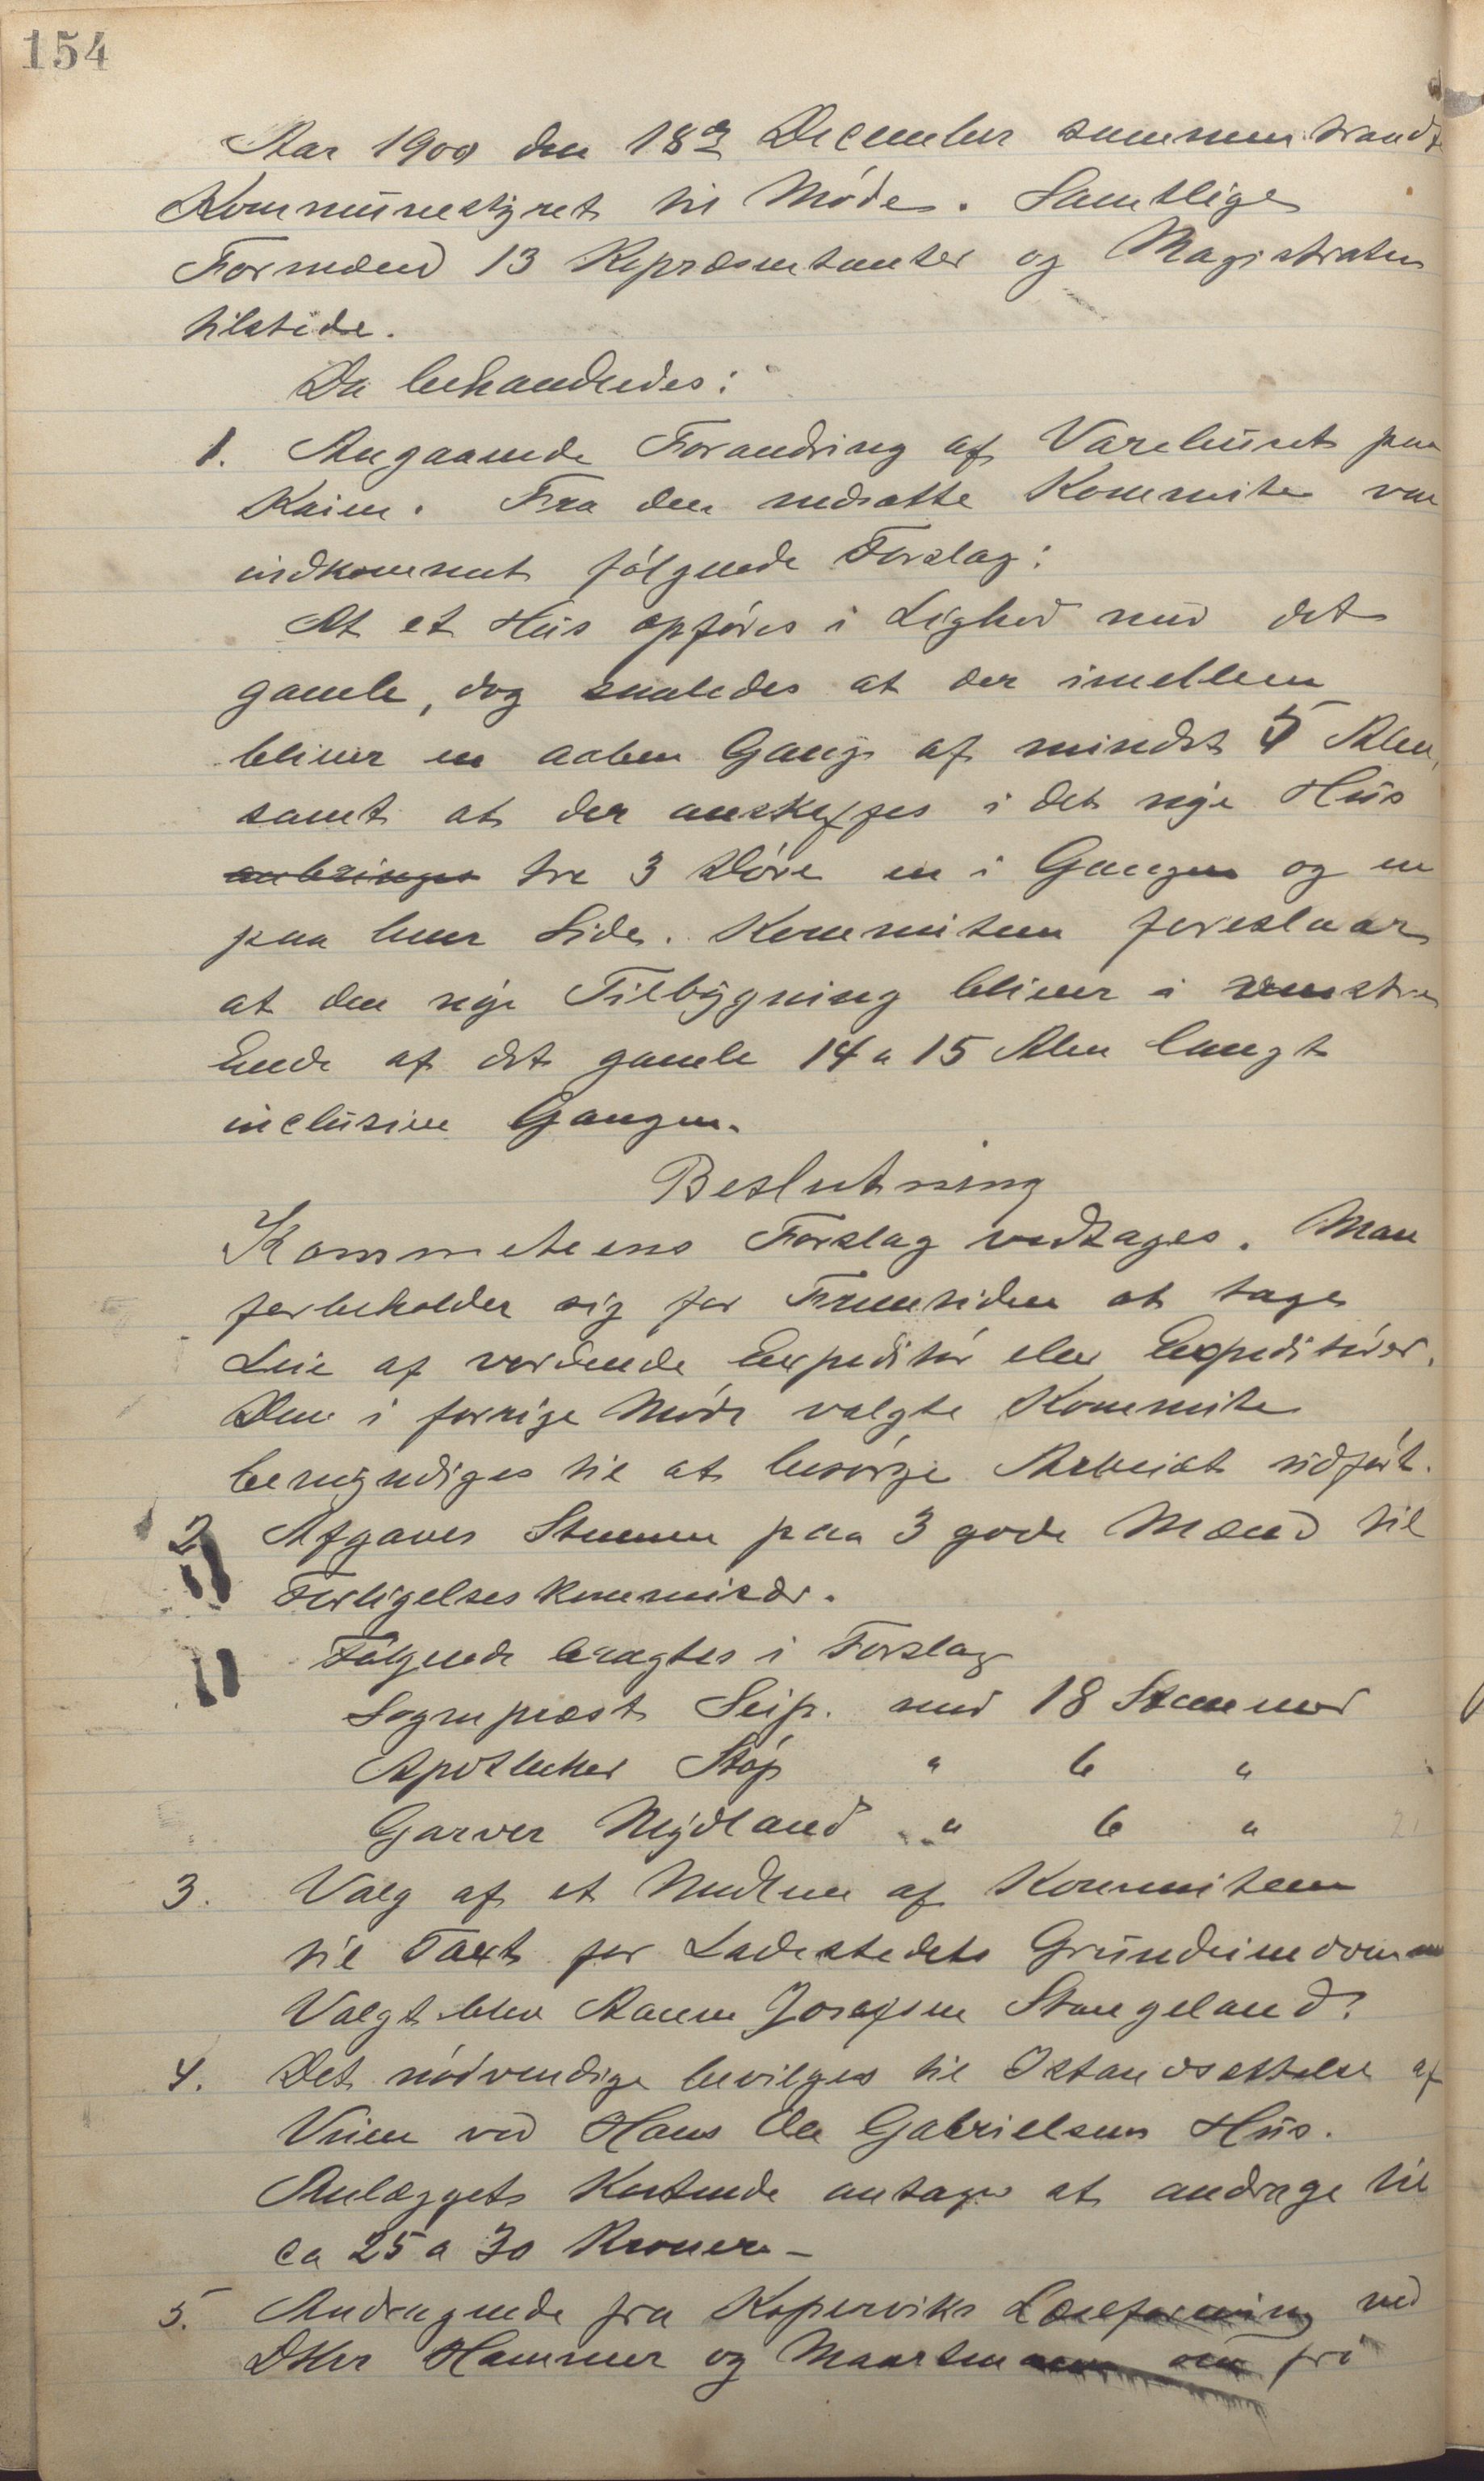 154
Aar 1900 den 18de December sammentraadt
Kommunestyret til Møde. Samtlige
Formænd 13 Repræsentanter og Magistraten
tilstede.
Da behandledes:
1. Angaaende Forandring af Varehuset paa
Kaien. Fra den nedsatte Kommite var
indkommet følgende Forslag:
At et Hus opføres i Lighed med det
gamle, dog saaledes at der imellem
bliver en aaben Gang af mindst 5 Alen,
samt at der anskaffes i det nye Hus
anbringes tre 3 Døre en i Gangen og en
paa hver Side. Kommiteen foreslaar
at den nye Tilbygning bliver i venstre
Ende af det gamle 14 a 15 Alen langt
inclusive Gangen.
Beslutning
Kommeteens Forslag vedtages. Man
forbeholder sig for Fremtiden at tage
Leie af vordende Expeditør eller Expeditører.
Den i forrige Møde valgte Kommite
bemyndiges til at besørge Arbeidet udført.
2 Afgaves Stemmer paa 3 gode Mænd til
Forligelseskommisær.
Følgende bragtes i Forslag
Sogneprest Seip. med 18 Stemmer
Apotheker Støp " 6 "
Garver Nydland " 6 "
3. Valg af et Medlem af Kommiteen
til Taxt for Ladestedets Grundeiendomme
Valgt blev Aanen Josefsen Stangeland.
4. Det nødvendige bevilges til Istandsættelse af
Veien ved Hans Ole Gabrielsens Hus.
Anlæggets Kostende antages at andrage til
ca 25 a 30 Kroner –
5. Andragende fra Koperviks Læseforening ved
DHrr Hammer og Maartmann om fri